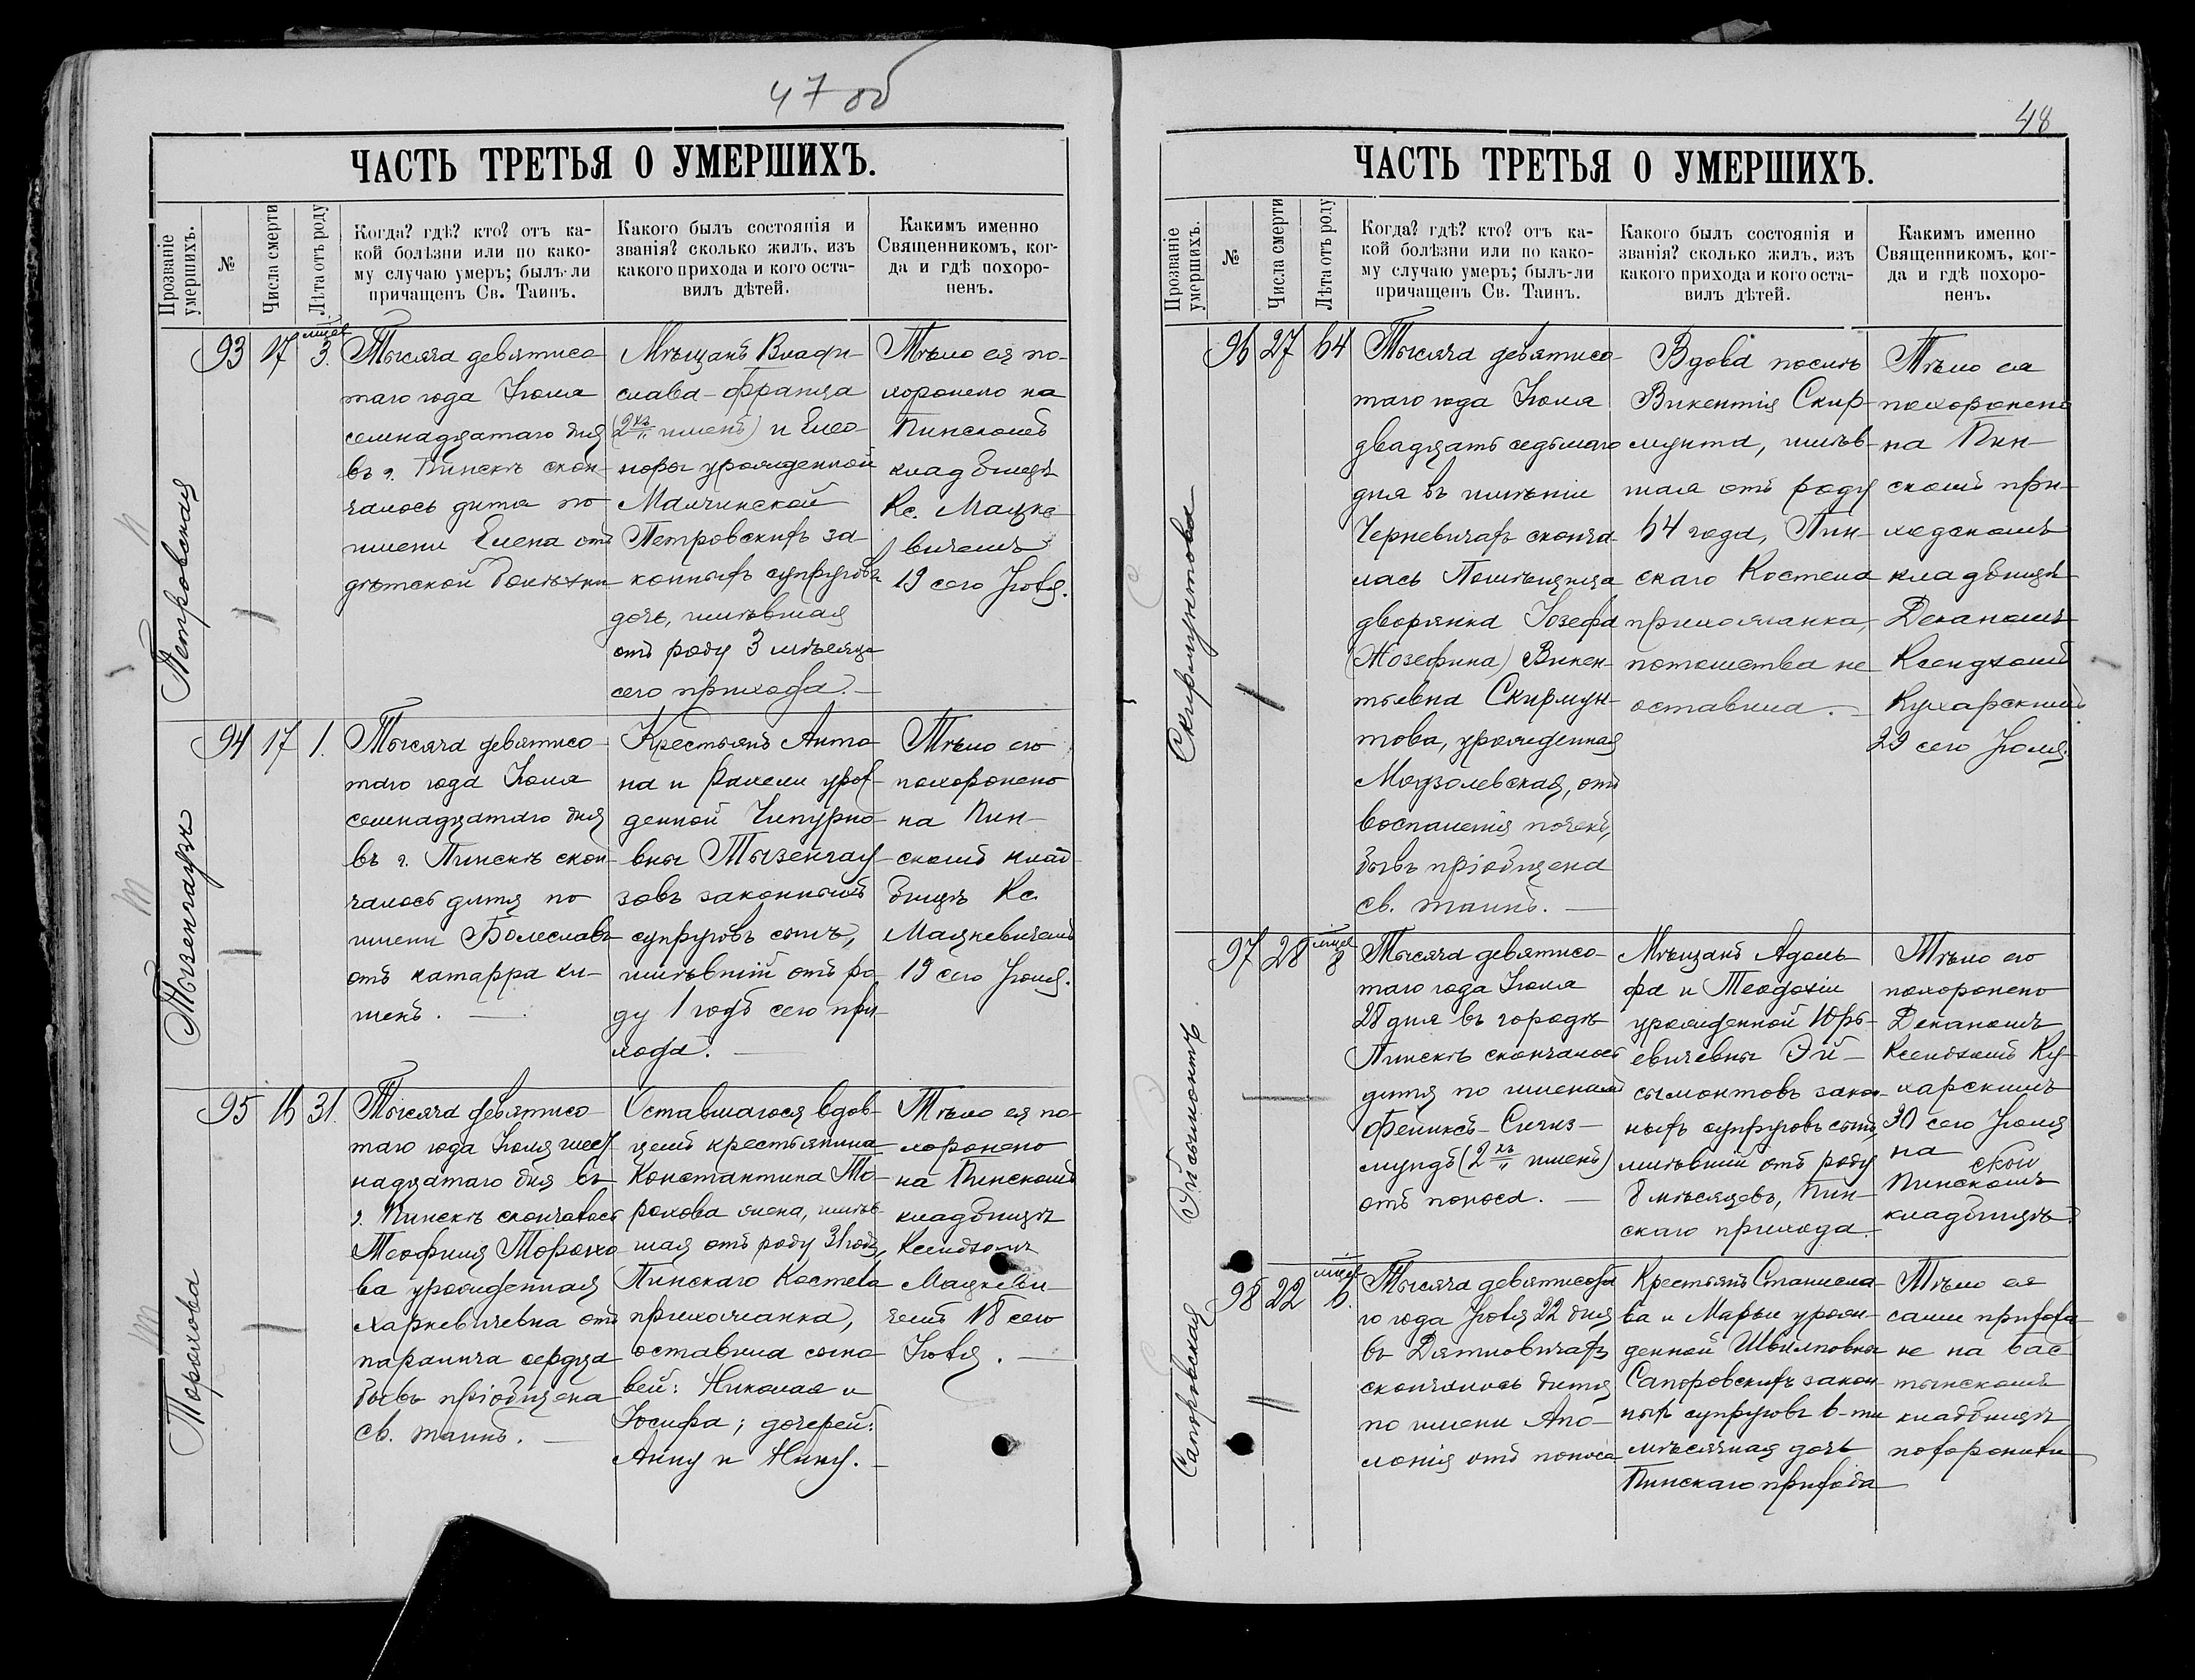 47 об
ЧАСТЬ ТРЕТЬЯ О УМЕРШИХЪ.
Прозваніе умершихъ.
№
Числа смерти
Лѣта отъ роду
Когда? гдѣ? кто? отъ ка-
кой болѣзни или по како-
му случаю умеръ; былъ-ли
причащенъ Св. Таинъ.
Какого былъ состоянія и
званія? сколько жилъ, изъ
какого прихода и кого оста-
вилъ дѣтей.
Какимъ именно
Священникомъ, ког-
да и гдѣ похоро-
ненъ.
Петровская
93
17
мцев
3.
Тысяча девятисо-
таго года Іюля
семнадцатаго дня
въ г. Пинскѣ скон-
чалось дитя по
имени Елена отъ
дѣтской болѣзни
Мѣщанъ Влади-
слава-Франца
(2хъ именъ) и Елео-
норы урожденной
Малчинской
Петровскихъ за-
конныхъ супруговъ
дочь, имѣвшая
отъ роду 3 мѣсяца
сего прихода.
Тѣло ея по-
хоронено на
Пинскомъ
кладбищѣ
Кс. Мацке-
вичемъ
19 сего Іюля.
Тызенгаузъ
94
17
1.
Тысяча девятисо-
таго года Іюля
семнадцатаго дня
въ г. Пинскѣ скон-
чалось дитя по
имени Болеславъ
отъ катарра ки-
шекъ.
Крестьянъ Анто-
на и Рахели урож-
денной Чипурно-
вны Тызенгау-
зовъ законныхъ
супруговъ сынъ,
имѣвшій отъ ро-
ду 1 годъ сего при-
хода.
Тѣло его
похоронено
на Пин-
скомъ клад-
бищѣ Кс.
Мацкевичемъ
19 сего Іюля.
Торохова
95
16
31.
Тысяча девятисо-
таго года Іюля шест-
надцатаго дня въ
г. Пинскѣ скончалась
Теофиля Торохо-
ва урожденная
Харкевичевна отъ
паралича сердца
бывъ пріобщена
Св. таинъ.
Оставшагося вдов-
цемъ крестьянина
Константина То-
рохова жена, имѣв-
шая отъ роду 31 годъ,
Пинскаго Костела
прихожанка,
оставила сыно-
вей: Николая и
Іосифа; дочерей:
Анну и Нину.
Тѣло ея по-
хоронено
на Пинскомъ
кладбищѣ
Ксендзомъ
Мацкеви-
чемъ 18 сего
Іюля.
48
ЧАСТЬ ТРЕТЬЯ О УМЕРШИХЪ.
Прозваніе умершихъ.
№
Числа смерти
Лѣта отъ роду
Когда? гдѣ? кто? отъ ка-
кой болѣзни или по како-
му случаю умеръ; былъ-ли
причащенъ Св. Таинъ.
Какого былъ состоянія и
званія? сколько жилъ, изъ
какого прихода и кого оста-
вилъ дѣтей.
Какимъ именно
Священникомъ, ког-
да и гдѣ похоро-
ненъ.
Скирмунтова
96
27
64
Тысяча девятисо-
таго года Іюля
двадцать седьмаго
дня въ имѣніи
Черневичахъ сконча-
лась Помѣщица
дворянка Іозефа
(Жозефина) Викен-
тьевна Скирмун-
това, урожденная
Модзолевская, отъ
воспаленія почекъ,
бывъ пріобщена
Св. таинъ.
Вдова послѣ
Викентія Скир-
мунта, имѣв-
шая отъ роду
64 года, Пин-
скаго Костела
прихожанка,
потомства не
оставила.
Тѣло ея
похоронено
на Пин-
скомъ при-
ходскомъ
кладбищѣ
Деканомъ
Ксендзомъ
Кухарскимъ
29 сего Іюля.
Эйсымонтъ
97
28
мцев
8
Тысяча девятисо-
таго года Іюля
28 дня въ городѣ
Пинскѣ скончалось
дитя по именамъ
Феликсъ-Сигиз-
мундъ (2хъ именъ)
отъ поноса.
Мѣщанъ Адоль-
фа и Теодозіи
урожденной Юрь-
евичевны Эй-
сымонтовъ закон-
ныхъ супруговъ сынъ,
имѣвшій отъ роду
8 мѣсяцевъ, Пин-
скаго прихода.
Тѣло его
похоронено
Деканомъ
Ксендзомъ Ку-
харскимъ
30 сего Іюля
на
ском
Пинскомъ
кладбищѣ.
Сапоровская
98
22
мцев
6.
Тысяча девятисота-
го года Іюля 22 дня
въ Дятловичахъ
скончалось дитя
по имени Апо-
лонія отъ поноса
Крестьянъ Станисла-
ва и Марьи урож-
денной Швилповны
Сапоровскихъ закон-
ныхъ супруговъ 6-ти
мѣсячная дочь
Пинскаго прихода
Тѣло ея
сами прихожа-
не на
кладбищѣ
похоронили